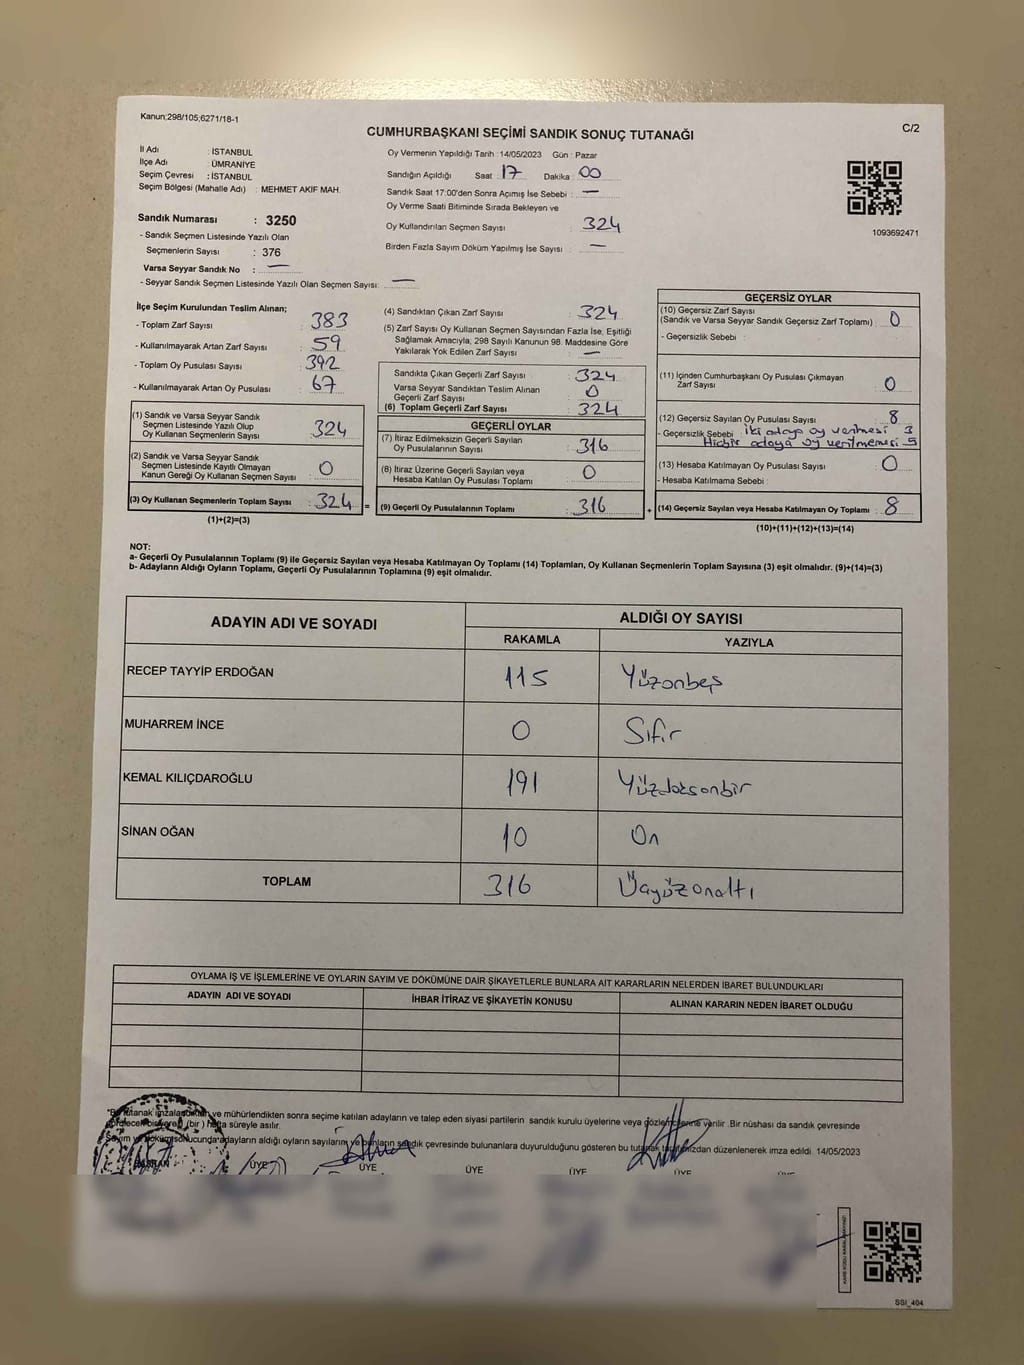 Kanun;298/105;6271/18-1
C/2
CUMHURBAŞKANI SEÇİMİ SANDIK SONUÇ TUTANAĞI
İl Adı : İSTANBUL
İlçe Adı : ÜMRANİYE
Seçim Çevresi : İSTANBUL
Seçim Bölgesi (Mahalle Adı) : MEHMET AKIF MAH.
Sandık Numarası : 3250
- Sandık Seçmen Listesinde Yazılı Olan
Seçmenlerin Sayısı : 376
Varsa Seyyar Sandık No : —
- Seyyar Sandık Seçmen Listesinde Yazılı Olan Seçmen Sayısı: —
Oy Vermenin Yapıldığı Tarih : 14/05/2023 Gün : Pazar
Sandığın Açıldığı Saat : 17 Dakika : 00
Sandık Saat 17:00'den Sonra Açımış İse Sebebi : —
Oy Verme Saati Bitiminde Sırada Bekleyen ve
Oy Kullandırılan Seçmen Sayısı : 324
Birden Fazla Sayım Döküm Yapılmış İse Sayısı : —
1093692471
İlçe Seçim Kurulundan Teslim Alınan;
- Toplam Zarf Sayısı : 383
- Kullanılmayarak Artan Zarf Sayısı : 59
- Toplam Oy Pusulası Sayısı : 392
- Kullanılmayarak Artan Oy Pusulası : 67
(1) Sandık ve Varsa Seyyar Sandık
Seçmen Listesinde Yazılı Olup
Oy Kullanan Seçmenlerin Sayısı : 324
(2) Sandık ve Varsa Seyyar Sandık
Seçmen Listesinde Kayıtlı Olmayan
Kanun Gereği Oy Kullanan Seçmen Sayısı : 0
(3) Oy Kullanan Seçmenlerin Toplam Sayısı : 324
(1)+(2)=(3)
(4) Sandıktan Çıkan Zarf Sayısı : 324
(5) Zarf Sayısı Oy Kullanan Seçmen Sayısından Fazla İse, Eşitliği
Sağlamak Amacıyla, 298 Sayılı Kanunun 98. Maddesine Göre
Yakılarak Yok Edilen Zarf Sayısı : —
Sandıkta Çıkan Geçerli Zarf Sayısı : 324
Varsa Seyyar Sandıktan Teslim Alınan
Geçerli Zarf Sayısı : 0
(6) Toplam Geçerli Zarf Sayısı : 324
GEÇERLİ OYLAR
(7) İtiraz Edilmeksizin Geçerli Sayılan
Oy Pusulalarının Sayısı : 316
(8) İtiraz Üzerine Geçerli Sayılan veya
Hesaba Katılan Oy Pusulası Toplamı : 0
= (9) Geçerli Oy Pusulalarının Toplamı : 316
GEÇERSİZ OYLAR
(10) Geçersiz Zarf Sayısı
(Sandık ve Varsa Seyyar Sandık Geçersiz Zarf Toplamı) : 0
- Geçersizlik Sebebi :
(11) İçinden Cumhurbaşkanı Oy Pusulası Çıkmayan
Zarf Sayısı : 0
(12) Geçersiz Sayılan Oy Pusulası Sayısı : 8
- Geçersizlik Sebebi : iki adaya oy verilmesi 3
Hiçbir adaya oy verilmemesi 5
(13) Hesaba Katılmayan Oy Pusulası Sayısı : 0
- Hesaba Katılmama Sebebi :
+ (14) Geçersiz Sayılan veya Hesaba Katılmayan Oy Toplamı : 8
(10)+(11)+(12)+(13)=(14)
NOT:
a- Geçerli Oy Pusulalarının Toplamı (9) ile Geçersiz Sayılan veya Hesaba Katılmayan Oy Toplamı (14) Toplamları, Oy Kullanan Seçmenlerin Toplam Sayısına (3) eşit olmalıdır. (9)+(14)=(3)
b- Adayların Aldığı Oyların Toplamı, Geçerli Oy Pusulalarının Toplamına (9) eşit olmalıdır.
ADAYIN ADI VE SOYADI ALDIĞI OY SAYISI
RAKAMLA YAZIYLA
RECEP TAYYİP ERDOĞAN 115 Yüzonbeş
MUHARREM İNCE 0 Sıfır
KEMAL KILIÇDAROĞLU 191 Yüzdoksonbir
SİNAN OĞAN 10 On
TOPLAM 316 Üçyüzonaltı
OYLAMA İŞ VE İŞLEMLERİNE VE OYLARIN SAYIM VE DÖKÜMÜNE DAİR ŞİKAYETLERLE BUNLARA AİT KARARLARIN NELERDEN İBARET BULUNDUKLARI
ADAYIN ADI VE SOYADI İHBAR İTİRAZ VE ŞİKAYETİN KONUSU ALINAN KARARIN NEDEN İBARET OLDUĞU
tutanak imzalandıktan ve mühürlendikten sonra seçime katılan adayların ve talep eden siyasi partilerin sandık kurulu üyelerine veya gözlemcilerine verilir .Bir nüshası da sandık çevresinde
(bir ) hafta süreyle asılır.
Sayım ve döküm sonucunda adayların aldığı oyların sayılarını ve bunların sandık çevresinde bulunanlara duyurulduğunu gösteren bu tutanak tarafımızdan düzenlenerek imza edildi. 14/05/2023
BAŞKAN ÜYE ÜYE ÜYE ÜYE ÜYE
SSI_404